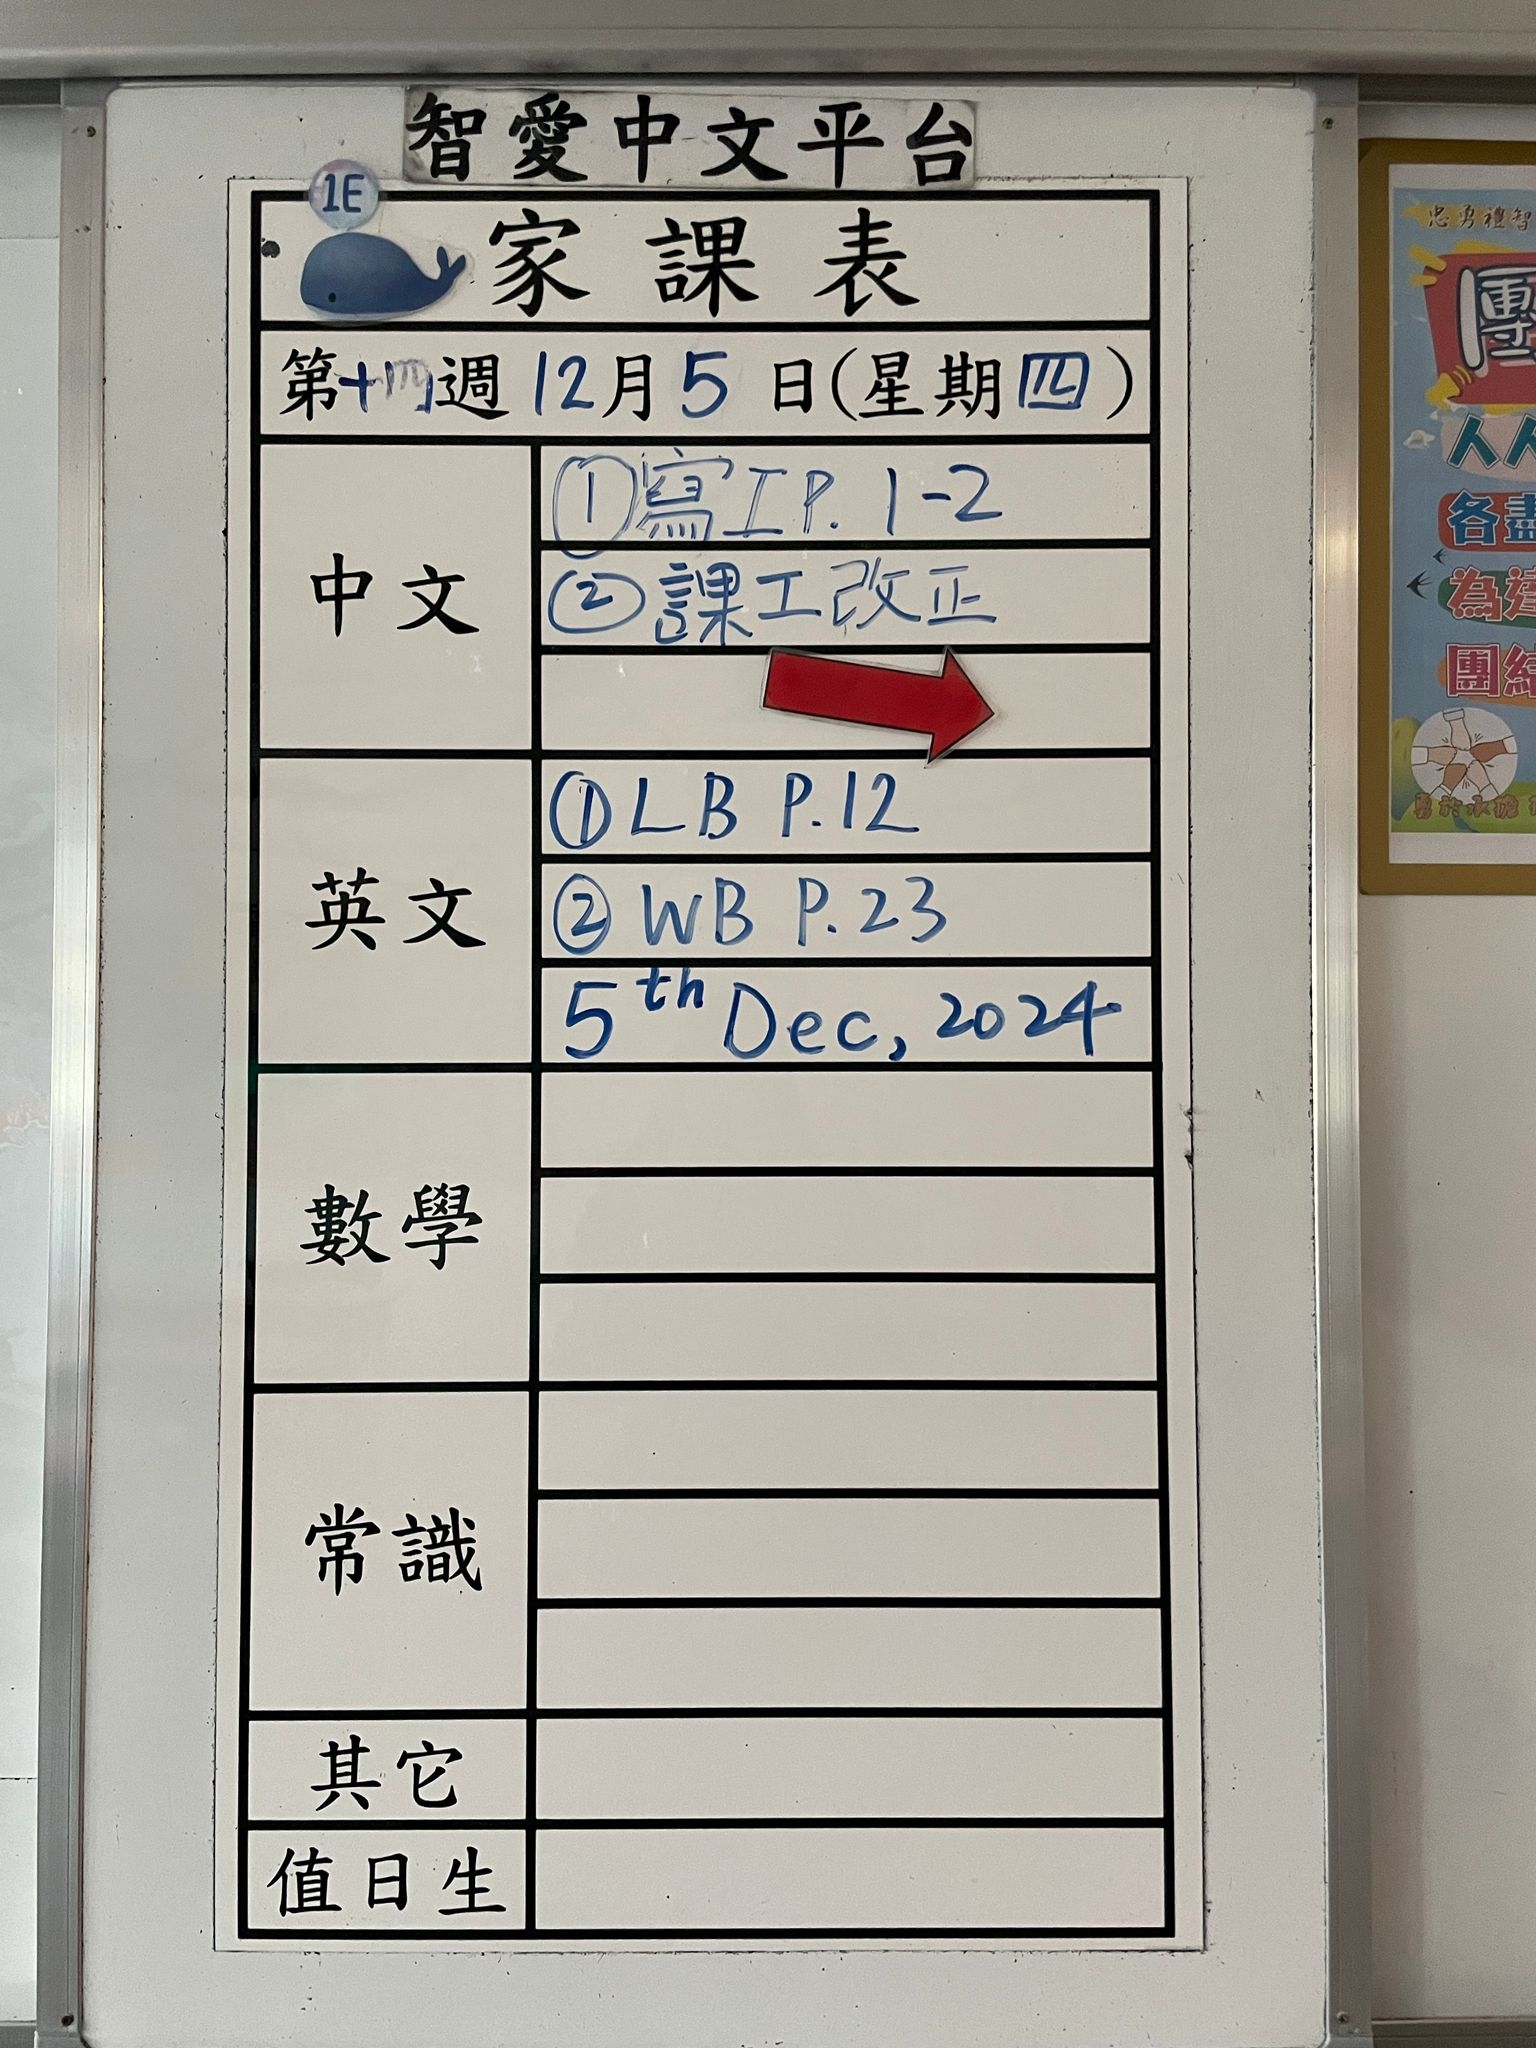 智愛中文平台
1E
家課表
第十四週12月5日(星期四)
中文
①寫工P.1-2
②課工改正
英文
①LB P.12
②WB P.23
5th Dec, 2024
數學
常識
其它
值日生
忠勇禮智
團
人人
各盡
為建
團結
勇於承擔